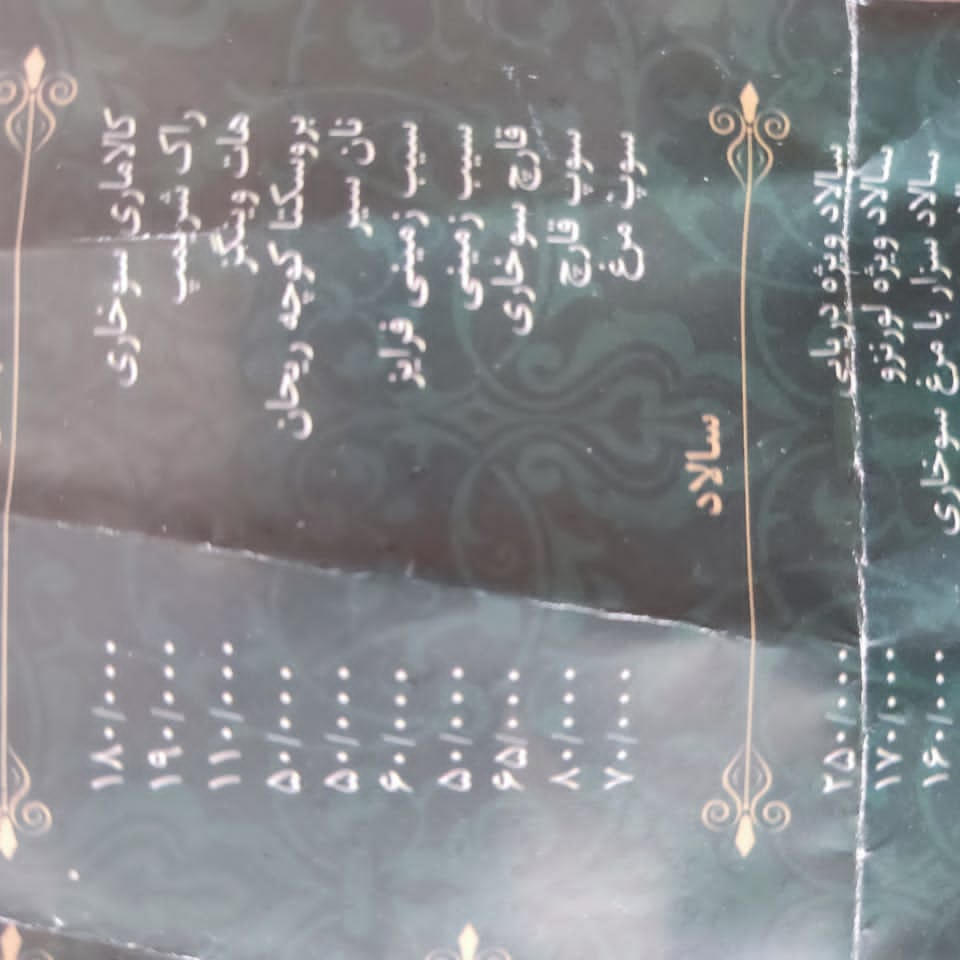 کالاماری سوخاری ۱۸۰/۰۰۰
راک شریمپ ۱۹۰/۰۰۰
هات وینگز ۱۱۰/۰۰۰
بروسکتا گوجه ریحان ۵۰/۰۰۰
نان سیر ۵۰/۰۰۰
سیب زمینی فرایز ۶۰/۰۰۰
سیب زمینی ۵۰/۰۰۰
قارچ سوخاری ۶۵/۰۰۰
سوپ قارچ ۸۰/۰۰۰
سوپ مرغ ۷۰/۰۰۰
سالاد
سالاد ویژه دریایی ۲۵۰/۰۰۰
سالاد ویژه لورنزو ۱۷۰/۰۰۰
سالاد سزار با مرغ سوخاری ۱۶۰/۰۰۰